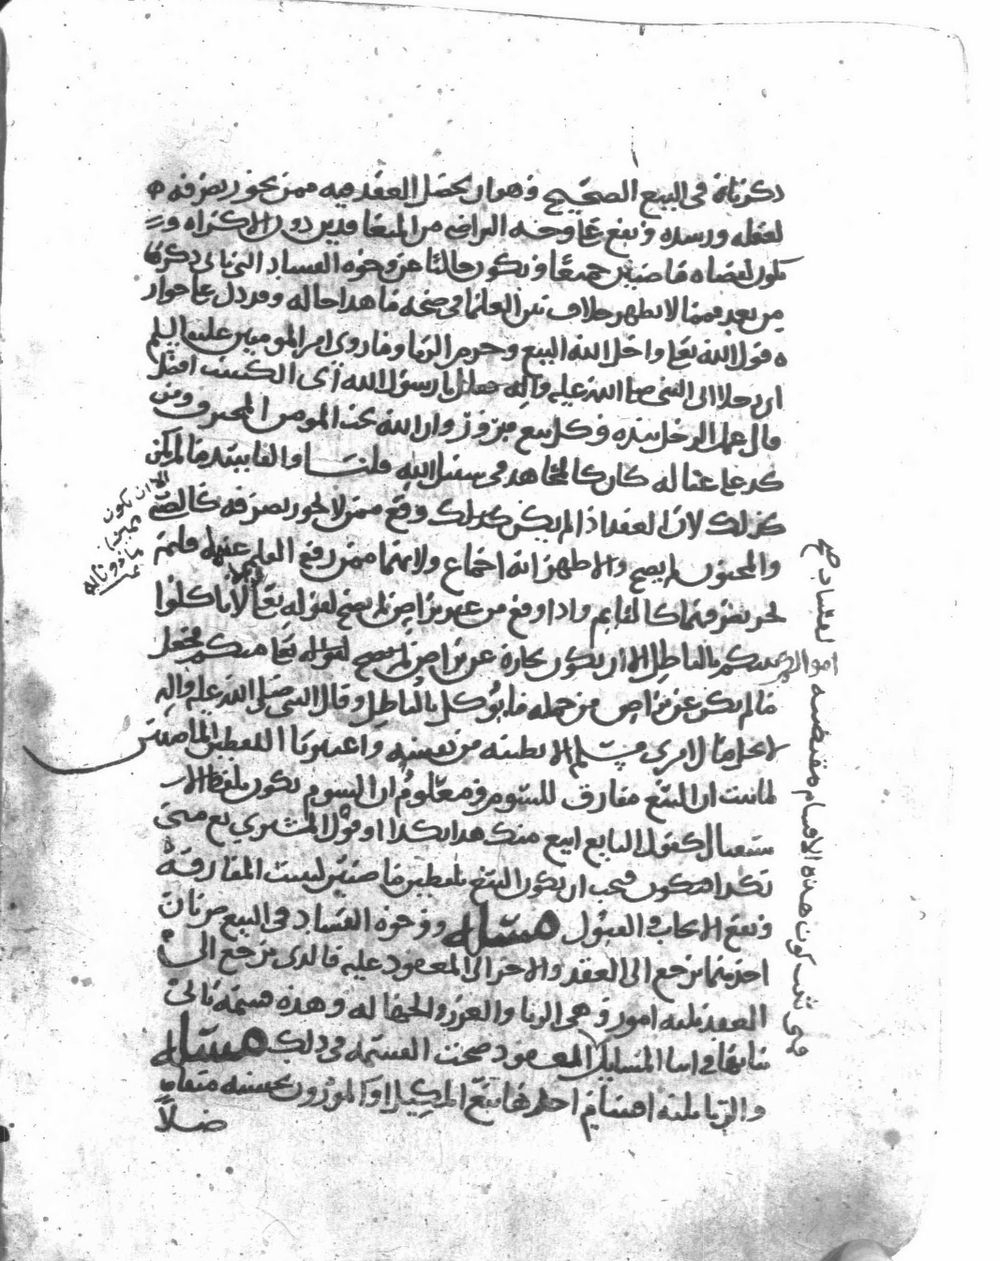 ذكرناه في البيع الصحيح وهو ان يحصل العقد فيه ممن يجوز تصرفه
لعقله ورشده ويقع على وجه التراضي من المتعاقدين دون الاكراه و
تكون لفظاه ماضيين جميعا ويكون خاليا عن وجوه الفساد التي ياتي ذكرها
من بعد فمما لا يظهر خلاف بين العلما في صحه ما هذا حاله وقد دل على جواز
ه قول الله تعالى واحل الله البيع وحرم الربا وما روي امير المومنين عليه السلم
ان رجلا اتى النبي صلى الله عليه واله فقال يا رسول الله اي الكسب افضل
قال عمل الرجل بيده وكل بيع مبرور وان الله يحب المومن المحترف ومن
كد على عياله كان كالمجاهد في سبيل الله وقلنا ما لم يكن
كذلك لان العقد اذا لم يكن كذلك وقع ممن لا يجوز تصرفه كالصبي
والمجنون لم يصح والاظهر انه اجماع ولانهما ممن رفع القلم عنهما فلم
يجز بيعهما كالنايم واذا وقع من غير تراض لم يصح لقوله تعالى لا تاكلوا
اموالكم بينكم بالباطل الا ان تكون تجارة عن تراض لم يصح لقوله تعالى منكم فجعل
ما لم يكن عن تراض من جمله ما يؤكل بالباطل وقال النبي صلى الله عليه واله
لا يحل مال امرئ مسلم الا بطيبه من نفسه واعتبرنا اللفظين الماضيين
لما ثبت ان البيع مفارق للسوم ومعلوم ان السوم يكون بلفظ الا
ستقبال كقول البايع ابيع منك هذا بكذا او قول المشتري بع مني
بكذا فيكون فيجب ان يكون البيع بلفظين ماضيين ليثبت المفارقة
ويقع الايجاب والقبول مسئله ووجوه الفساد في البيع ضربان
احدهما يرجع الى العقد والاخر الى المعقود عليه فالذي يرجع الى
العقد ثلثه امور وهي الربا والغرر والجهاله وهذه قسمه ياتي
بيانها في اثنا المسايل المعقود صحت القسمه في ذلك مسئله
والربا ثلثه اقسام احدها بيع المكيل او الموزون بجنسه متفا
ضلا
الا ان يكون
مميزا
ماذونا له
فمتى ثبت كون هذه الاقسام مقتضيه لفساد صح